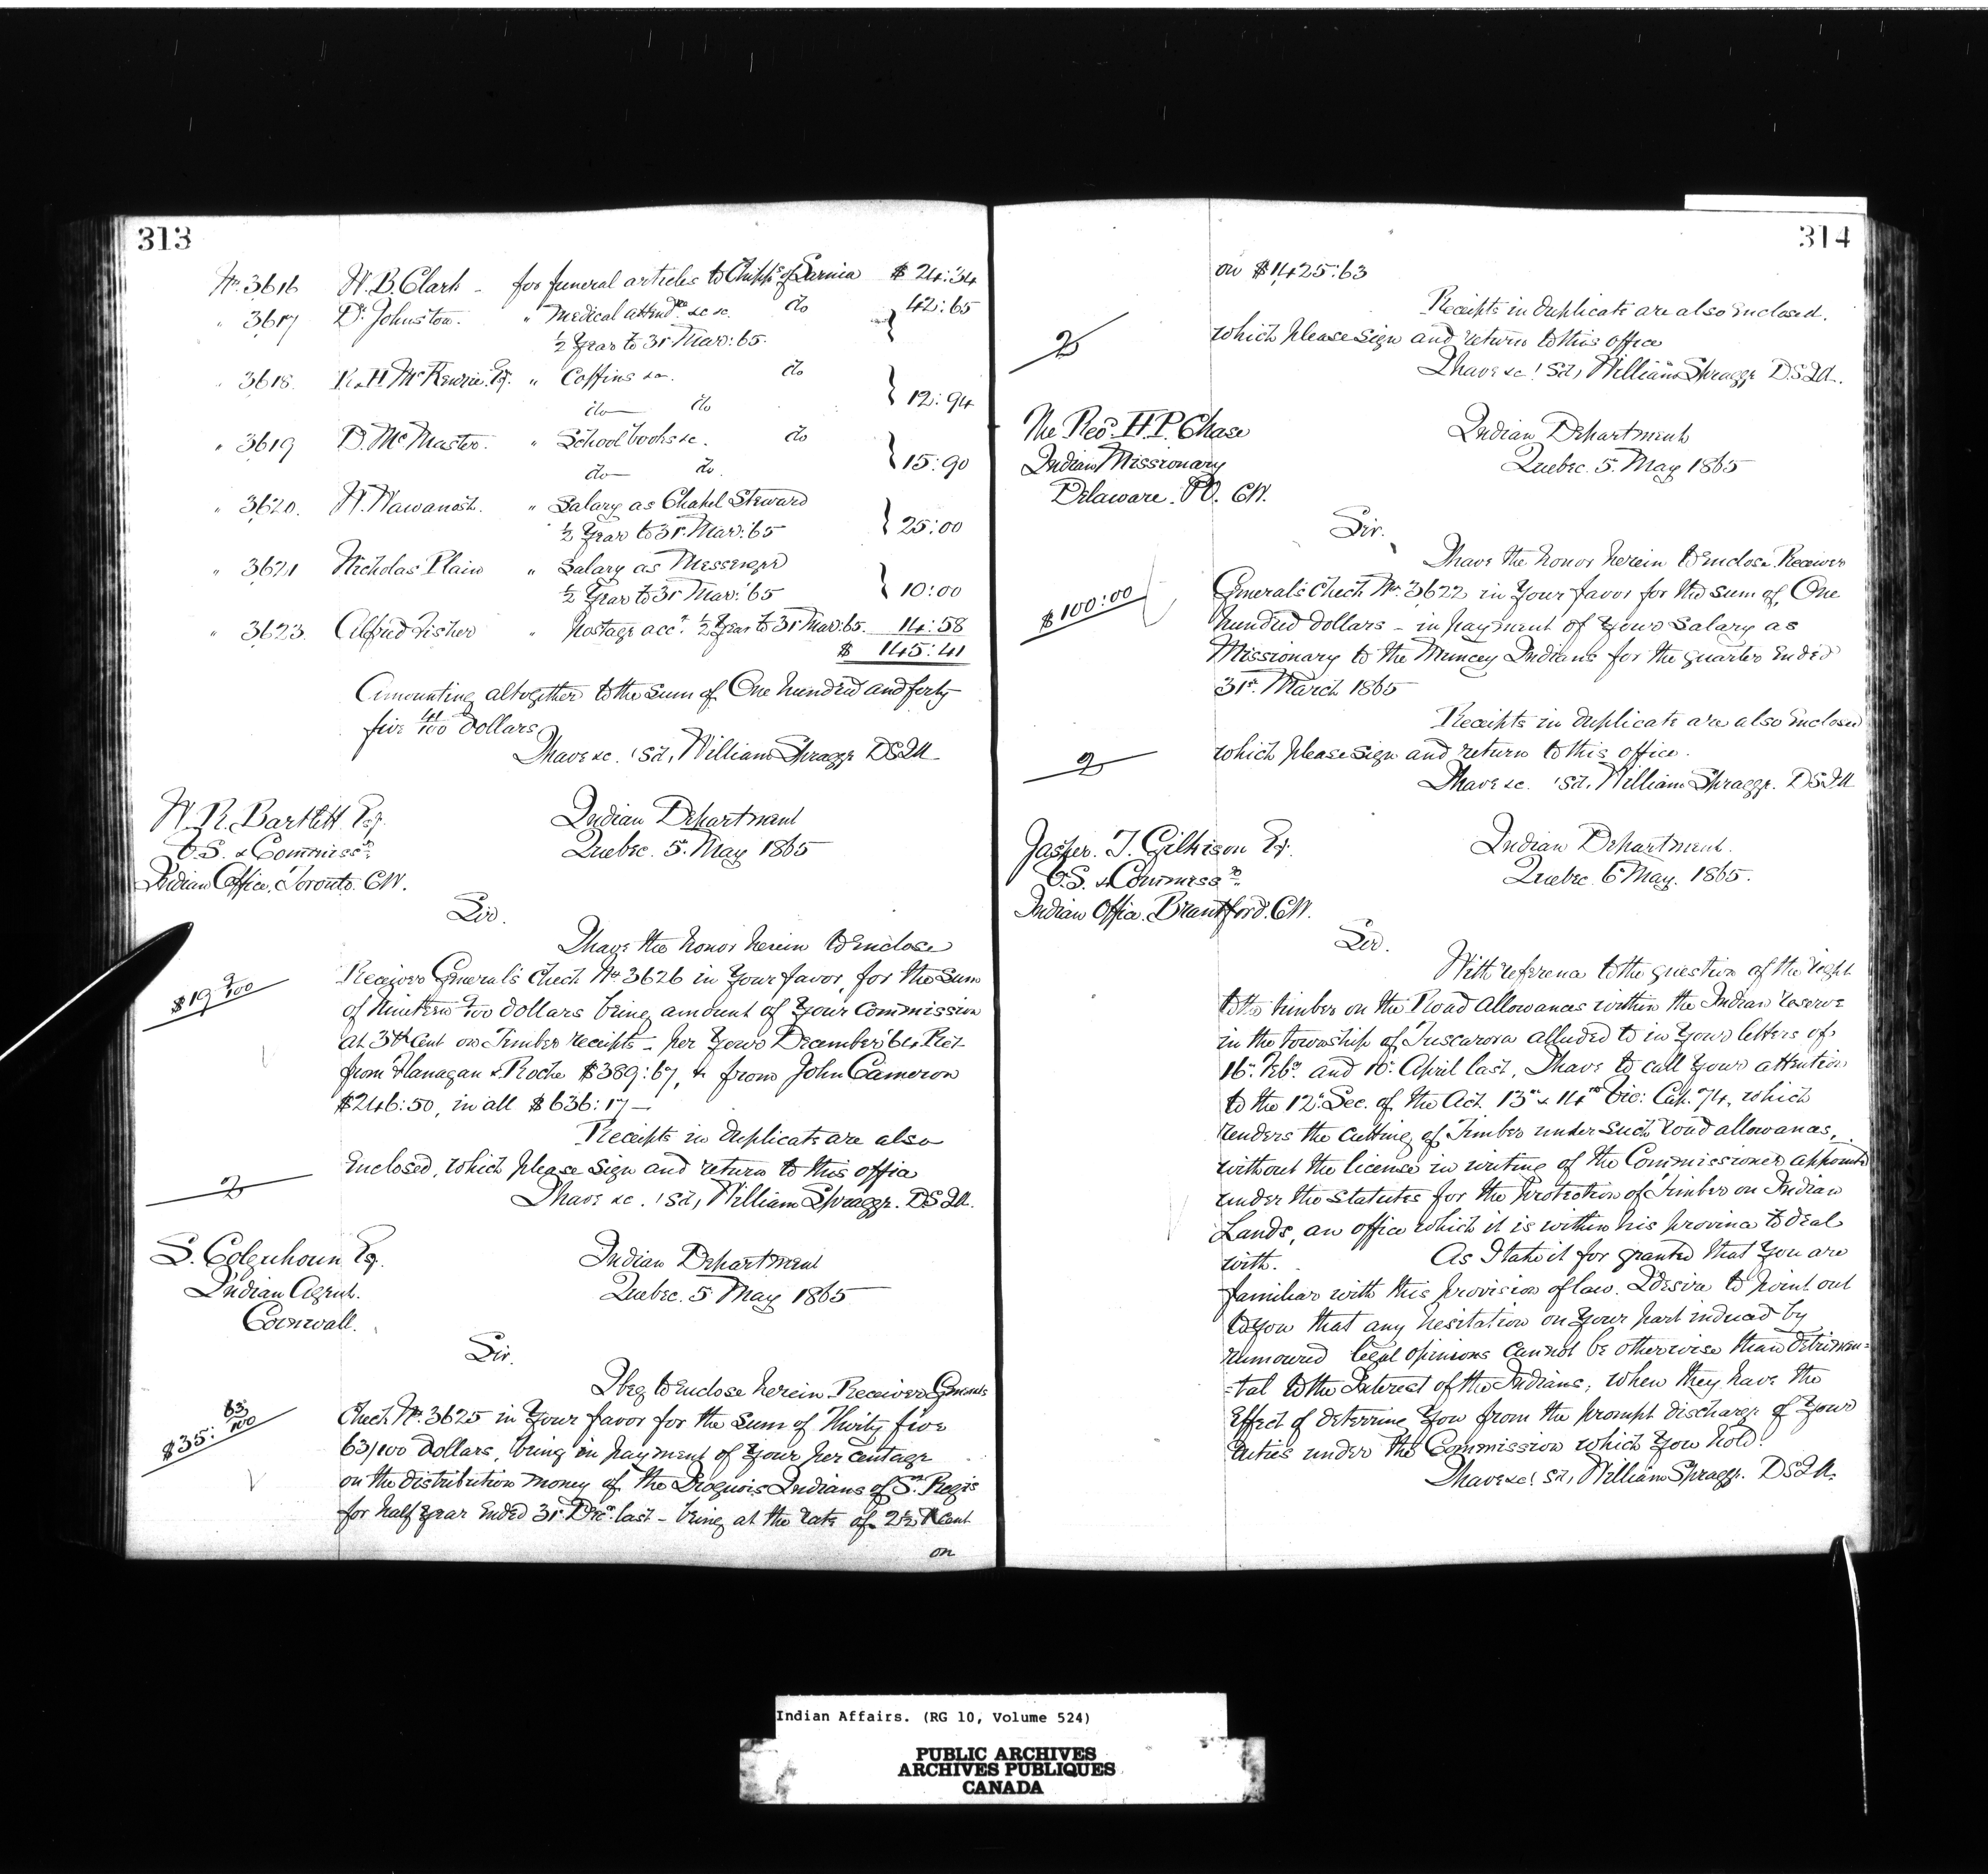 313
No. 3616 W. B. Clark - for funeral articles to Chipps. of Sarnia $ 24:34
" 3617 Dr. Johnston. " Medical attendce. &c &c. do 42:65
½ Year to 31 Mar: 65.
" 3618. R. H McKenzie. Esq. " Coffins &c. do
do do 12:94
" 3619 D. McMaster. " School books &c. do
do do 15:90
" 3620. W. Wawanosh. " Salary as Chapel Steward
½ Year to 31. Mar: '65 25:00
" 3621 Nicholas Plain " Salary as Messenger
½ Year to 31 Mar: '65 10:00
" 3623. Alfred Fisher " Postage acct. ½ Year to 31 Mar: 65. 14:58
$ 145:41
Amounting altogether to the sum of One hundred and forty
five 41/100 Dollars
I have &c. (Sd, William Spragge DSIA
W. R. Bartlett Esq.
V.S. & Commissr.
Indian Office, Toronto. C.W.
Indian Department
Quebec. 5. May 1865
Sir.
I have the honor herein to enclose
$19 9/100
Receiver General's Check No. 3626 in Your favor, for the Sum
of Nineteen 9/100 dollars being amount of Your Commission
at 3 ⅌ Cent on Timber receipts - per Your December '64 Ret
from Flanagan & Roche $389:67, & from John Cameron
$246:50, in all $636:17 —
Receipts in duplicate are also
Enclosed, which please sign and return to this office
2
I have &c. (Sd, William Spragge. DSIA.
S. Colquhoun Esq.
Indian Agent.
Cornwall.
Indian Department
Quebec. 5 May 1865
Sir.
I beg to enclose herein Receiver Generals
$35: 63/100
Check No. 3625 in Your favor for the Sum of Thirty five
63/100 Dollars, being in payment of Your per centage
on the distribution money of the Iroquois Indians of St. Regis
for half Year Ended 31 Decr. last - being at the rate of 2½ ⅌ Cent
on
314
on $1425:63
Receipts in duplicate are also Enclosed.
which please sign and return to this office
2
I have &c (Sd, William Spragge DSIA.
The Revd. H. P. Chase
Indian Missionary
Delaware. P.O. C.W.
Indian Department
Quebec. 5. May 1865
Sir.
I have the honor herein to enclose Receiver
$100:00
General's Check No. 3622 in Your favor for the sum of, One
hundred dollars - in payment of Your Salary as
Missionary to the Muncey Indians for the quarter Ended
31st. March 1865
Receipts in duplicate are also Enclosed
which please sign and return to this office.
2
I have &c. (Sd, William Spragge. DSIA
Jasper. T. Gilkison Esq.
V.S. & Commissr.
Indian Office. Brantford. C.W.
Indian Department.
Quebec. 6 May. 1865.
Sir.
With reference to the question of the right
to the timber on the Road Allowances within the Indian reserve
in the township of Tuscarora alluded to in Your letters of
16th. Feby. and 10th. April last, I have to call Your attention
to the 12th. Sec. of the Act. 13th & 14th Vic: Cap. 74, which
renders the Cutting of Timber under such road allowances,
without the license in writing of the Commissioner appointed
under the statutes for the protection of Timber on Indian
Lands, an offence which it is within his province to deal
with. As I take it for granted that You are
familiar with this provision of law. I desire to point out
to you that any hesitation on Your part induced by
rumoured legal opinions cannot be otherwise than detrimen=
=tal to the Interest of the Indians; when they have the
Effect of deterring You from the prompt discharge of Your
duties under the Commission which You hold.
I have &c! Sd, William Spragge. DSIA.
Indian Affairs. (RG 10, Volume 524)
PUBLIC ARCHIVES
ARCHIVES PUBLIQUES
CANADA